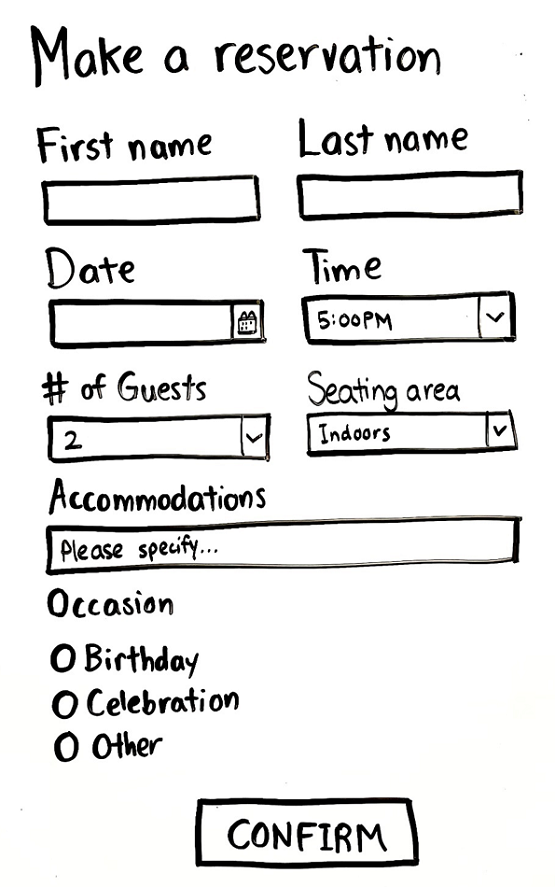 Make a reservation
First name Last name
Date Time
5:00PM
# of Guests Seating area
2 Indoors
Accommodations
Please specify...
Occasion
Birthday
Celebration
Other
CONFIRM